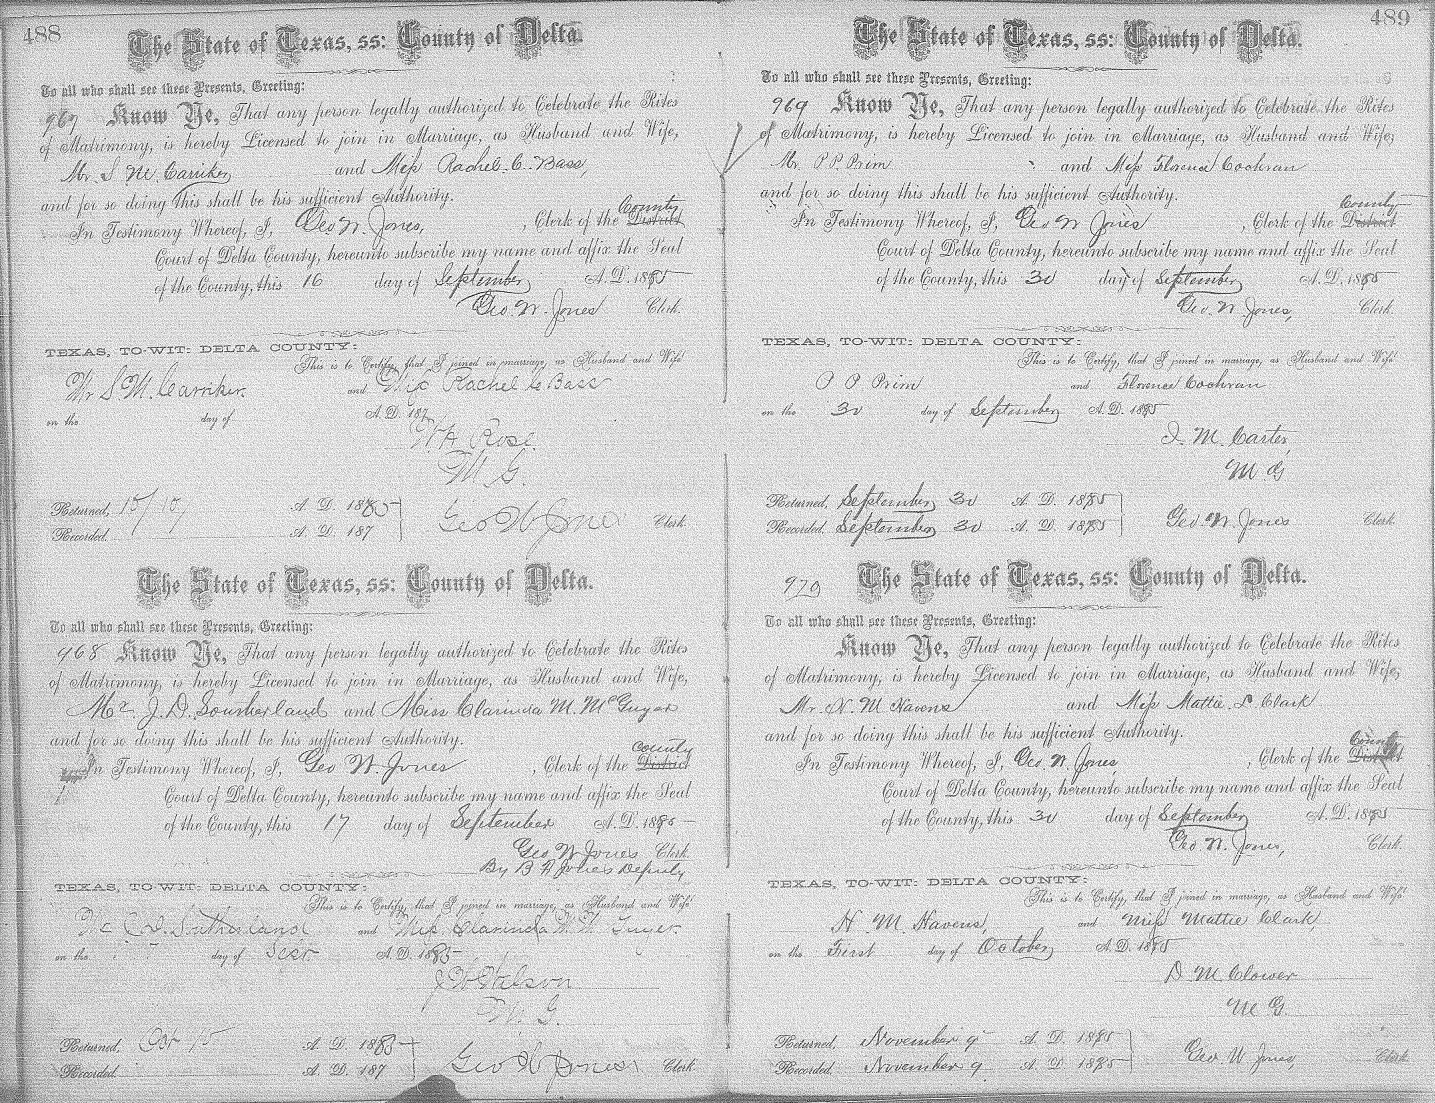 488
The State of Texas, ss: County of Delta.
To all who shall see these Presents, Greeting:
967 Know Ye, That any person legally authorized to Celebrate the Rites
of Matrimony, is hereby Licensed to join in Marriage, as Husband and Wife,
Mr. S M. Carriker and Miss Rachel C. Bass,
and for so doing this shall be his sufficient Authority.
In Testimony Whereof, I, Geo W. Jones, , Clerk of the District County
Court of Delta County, hereunto subscribe my name and affix the Seal
of the County, this 16 day of September A. D. 1885
Geo. W. Jones Clerk.
TEXAS, TO-WIT: DELTA COUNTY:
This is to Certify, that I joined in marriage, as Husband and Wife
Mr S M. Carriker. and Miss Rachel C Bass
on the day of A. D. 187
Rose
M G.
Returned, 15/10 A. D. 1885
Recorded. A. D. 187
Geo W Jones Clerk.
The State of Texas, ss: County of Delta.
To all who shall see these Presents, Greeting:
968 Know Ye, That any person legally authorized to Celebrate the Rites
of Matrimony, is hereby Licensed to join in Marriage, as Husband and Wife,
Mr. J. D. Southerland and Miss Clarinda M. McGuyer
and for so doing this shall be his sufficient Authority.
In Testimony Whereof, I, Geo W. Jones , Clerk of the District County
Court of Delta County, hereunto subscribe my name and affix the Seal
of the County, this 17 day of September A. D. 1885
Geo W Jones Clerk.
By B F Jones Deputy
TEXAS, TO-WIT: DELTA COUNTY:
This is to Certify, that I joined in marriage, as Husband and Wife
J. D. Sutherland and Miss Clarinda M. Mc Guyer
on the day of Sept A. D. 1885
M. G.
Returned, Oct 15 A. D. 1885
Recorded. A. D. 187
Geo W Jones Clerk.
489
The State of Texas, ss: County of Delta.
To all who shall see these Presents, Greeting:
969 Know Ye, That any person legally authorized to Celebrate the Rites
of Matrimony, is hereby Licensed to join in Marriage, as Husband and Wife;
Mr. P. P. Prim and Miss Florence Cochran
and for so doing this shall be his sufficient Authority.
In Testimony Whereof, I, Geo W Jones , Clerk of the District County
Court of Delta County, hereunto subscribe my name and affix the Seal
of the County, this 30 day of September A. D. 1885
Geo. W. Jones, Clerk.
TEXAS, TO-WIT: DELTA COUNTY:
This is to Certify, that I joined in marriage, as Husband and Wife
P P Prim and Florence Cochran
on the 30 day of September A. D. 1885
J. M. Carter
M G
Returned, September 30 A. D. 1885
Recorded. September 30 A. D. 1885
Geo. W. Jones Clerk.
970
The State of Texas, ss: County of Delta.
To all who shall see these Presents, Greeting:
Know Ye, That any person legally authorized to Celebrate the Rites
of Matrimony, is hereby Licensed to join in Marriage, as Husband and Wife;
Mr. N. M Havens and Miss Mattie L Clark
and for so doing this shall be his sufficient Authority.
In Testimony Whereof, I, Geo. W. Jones , Clerk of the District County
Court of Delta County, hereunto subscribe my name and affix the Seal
of the County, this 30 day of September A. D. 1885
Geo W. Jones, Clerk.
TEXAS, TO-WIT: DELTA COUNTY:
This is to Certify, that I joined in marriage, as Husband and Wife
N. M. Havens, and Miss Mattie Clark,
on the First day of October A. D. 1885
D. M. Clower
M G.
Returned, November 9 A. D. 1885
Recorded. November 9 A. D. 1885
Geo W Jones, Clerk.